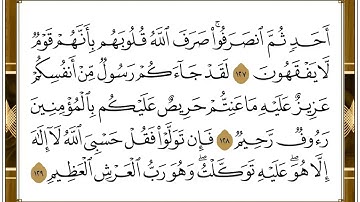 أَحَدٍ ثُمَّ ٱنصَرَفُوا۟ ۚ صَرَفَ ٱللَّهُ قُلُوبَهُم بِأَنَّهُمْ قَوْمٌ
لَّا يَفْقَهُونَ ١٢٧ لَقَدْ جَآءَكُمْ رَسُولٌ مِّنْ أَنفُسِكُمْ
عَزِيزٌ عَلَيْهِ مَا عَنِتُّمْ حَرِيصٌ عَلَيْكُم بِٱلْمُؤْمِنِينَ
رَءُوفٌ رَّحِيمٌ ١٢٨ فَإِن تَوَلَّوْا۟ فَقُلْ حَسْبِىَ ٱللَّهُ لَآ إِلَٰهَ
إِلَّا هُوَ ۖ عَلَيْهِ تَوَكَّلْتُ ۖ وَهُوَ رَبُّ ٱلْعَرْشِ ٱلْعَظِيمِ ١٢٩